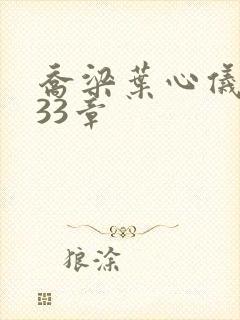 乔梁葉心儀
33章
狼涂